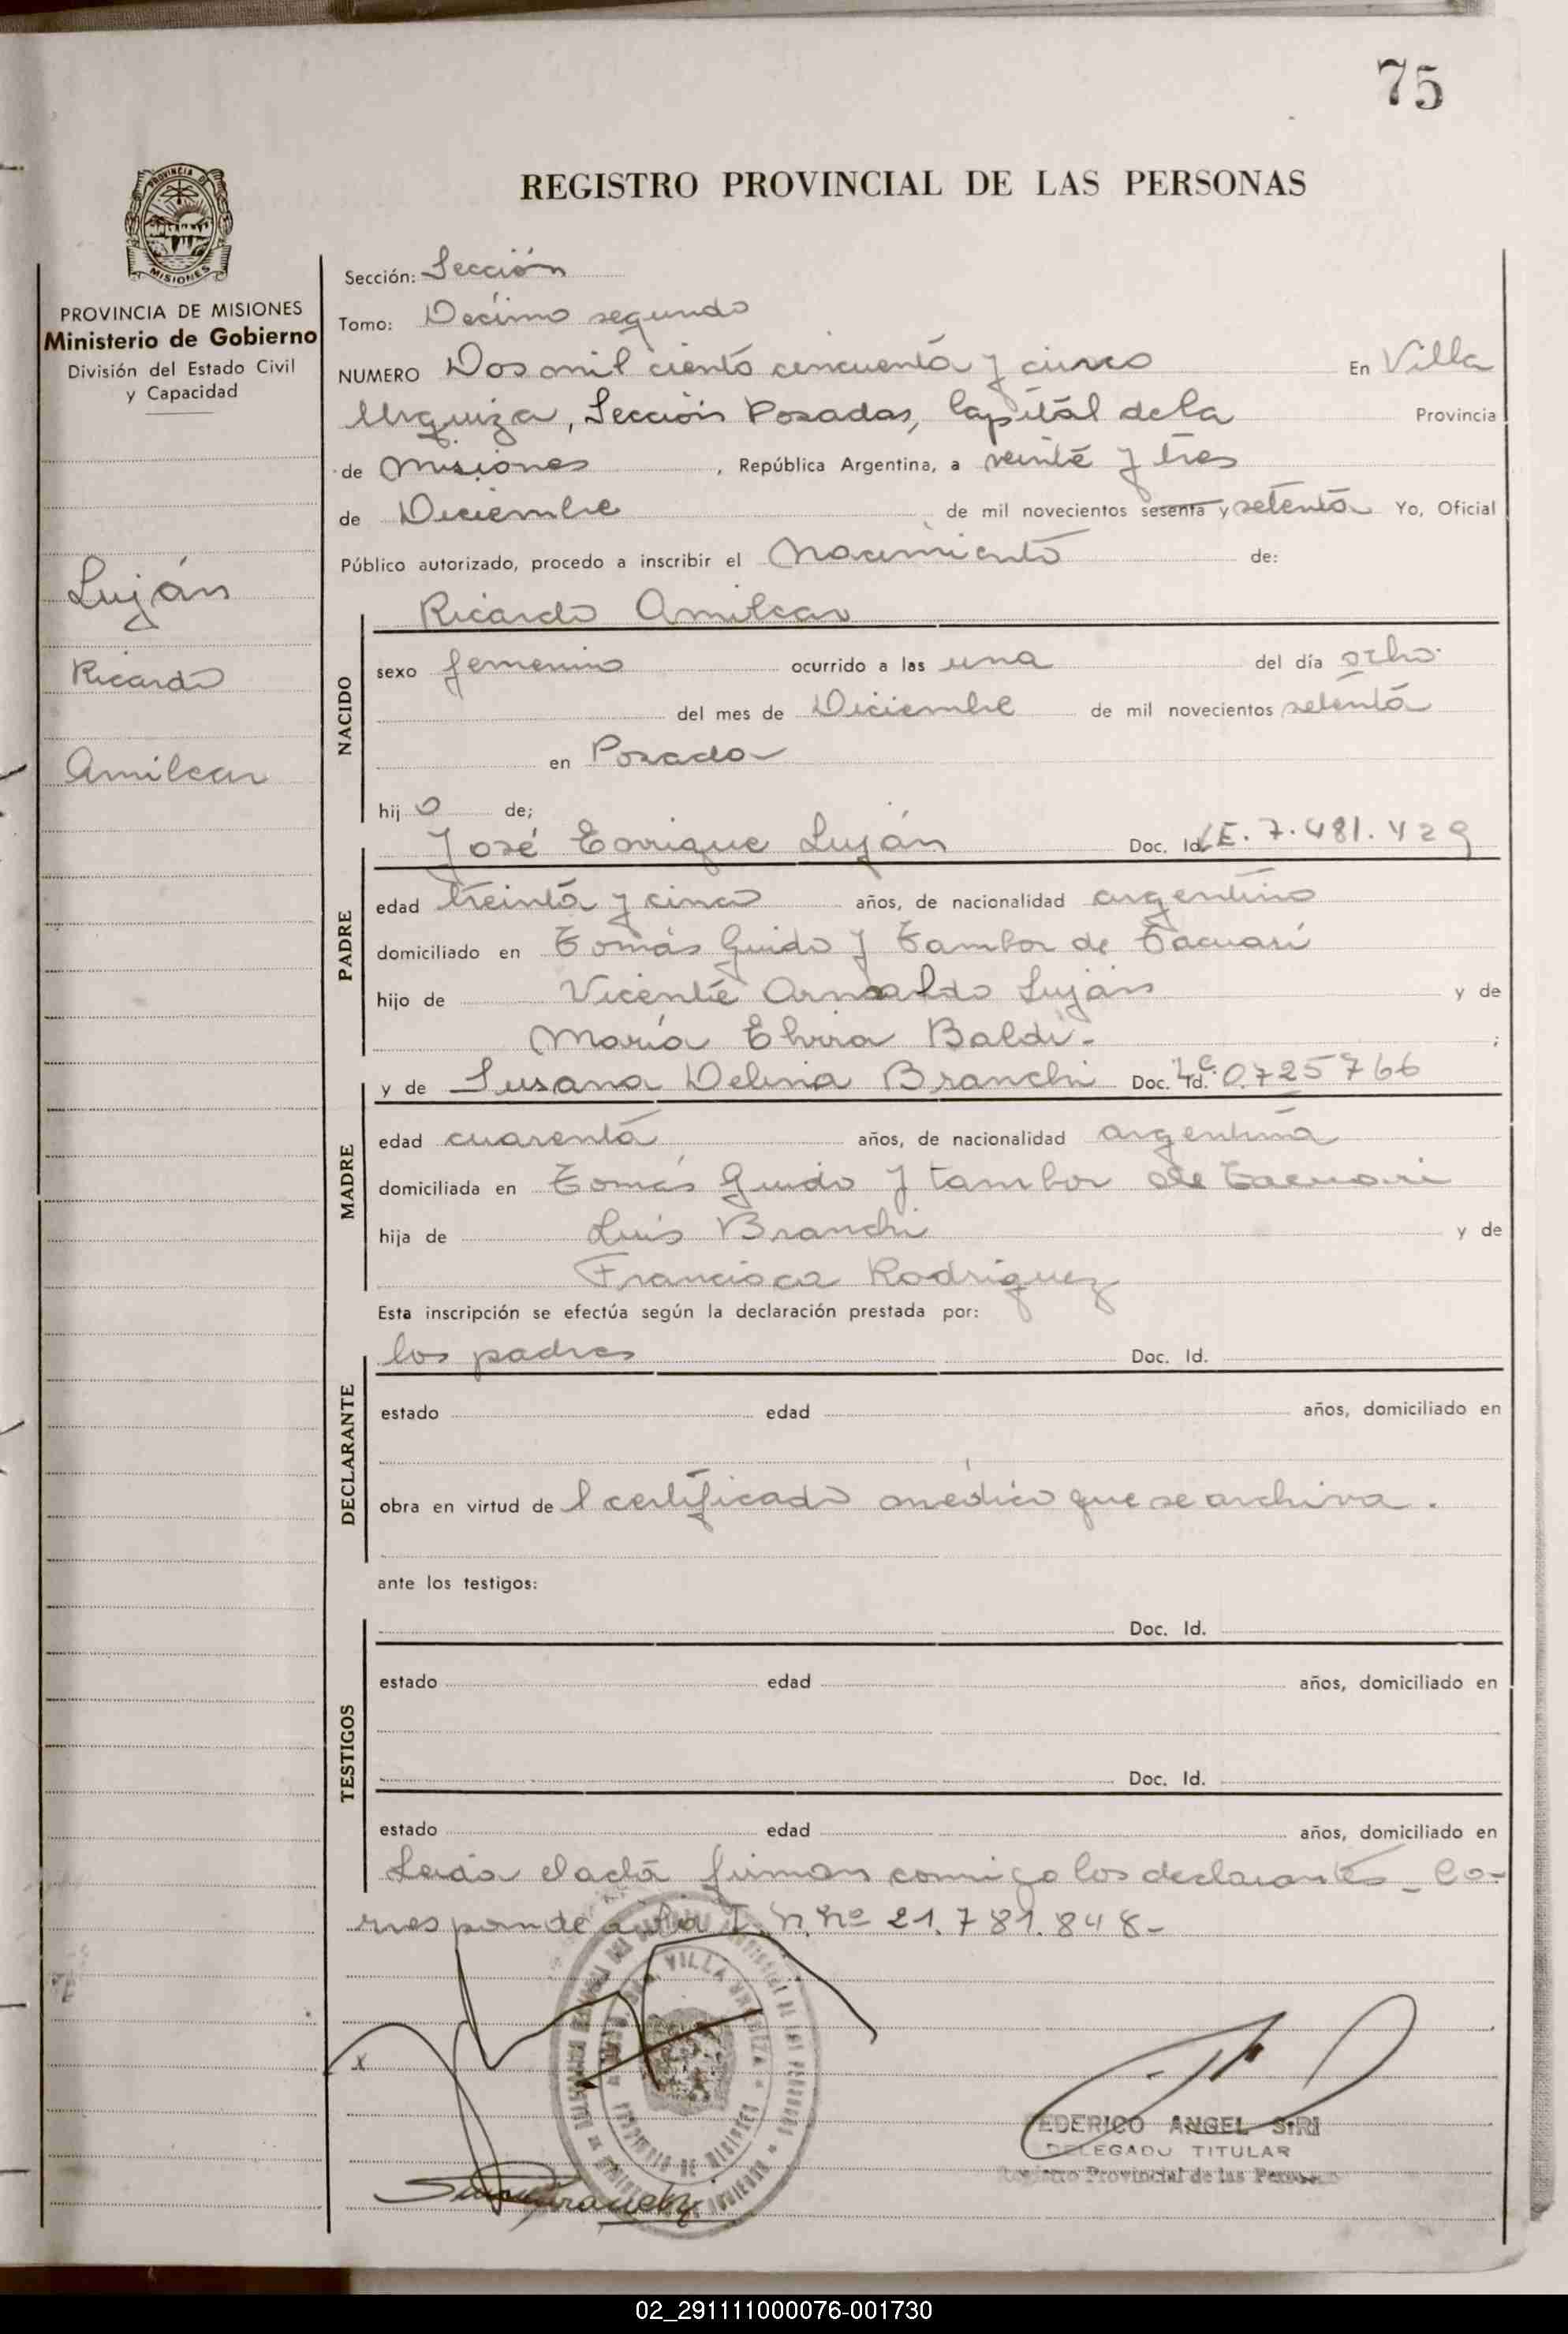 75
PROVINCIA DE
MISIONES
REGISTRO PROVINCIAL DE LAS PERSONAS
PROVINCIA DE MISIONES
Ministerio de Gobierno
División del Estado Civil
y Capacidad
Luján
Ricardo
Amilcar
Sección: Sección
Tomo: Decimo segundo
NUMERO Dos mil ciento cincuenta y cinco En Villa
Urquiza, Sección Posadas, Capital de la Provincia
de Misiones, República Argentina, a veinte y tres
de Diciembre de mil novecientos sesenta y setenta Yo, Oficial
Público autorizado, procedo a inscribir el Nacimiento de:
Ricardo Amilcar
NACIDO
sexo femenino ocurrido a las una del día ocho
del mes de Diciembre de mil novecientos setenta
en Posada
hij o de;
José Enrique Luján Doc. Id. LE. 7.481.429
PADRE
edad treinta y cinco años, de nacionalidad argentino
domiciliado en Tomás Guido y Tambor de Tacuarí
hijo de Vicente Arnaldo Luján y de
María Elvira Baldi. ;
y de Susana Delina Branchi Doc. Id. 0.725766
MADRE
edad cuarenta años, de nacionalidad argentina
domiciliada en Tomás Guido y tambor de Tacuari
hija de Luis Branchi y de
Francisca Rodriguez
Esta inscripción se efectúa según la declaración prestada por:
los padres Doc. Id.
DECLARANTE
estado edad años, domiciliado en
obra en virtud de l certificado médico que se archiva.
ante los testigos:
Doc. Id.
TESTIGOS
estado edad años, domiciliado en
Doc. Id.
estado edad años, domiciliado en
Leida el acta firman conmigo los declarantes - Co-
rresponde a la I. N. Nº 21.781.848-
VILLA URQUIZA
PROVINCIA DE MISIONES
x
FEDERICO ANGEL SIRI
DELEGADO TITULAR
Registro Provincial de las Personas
02_291111000076-001730